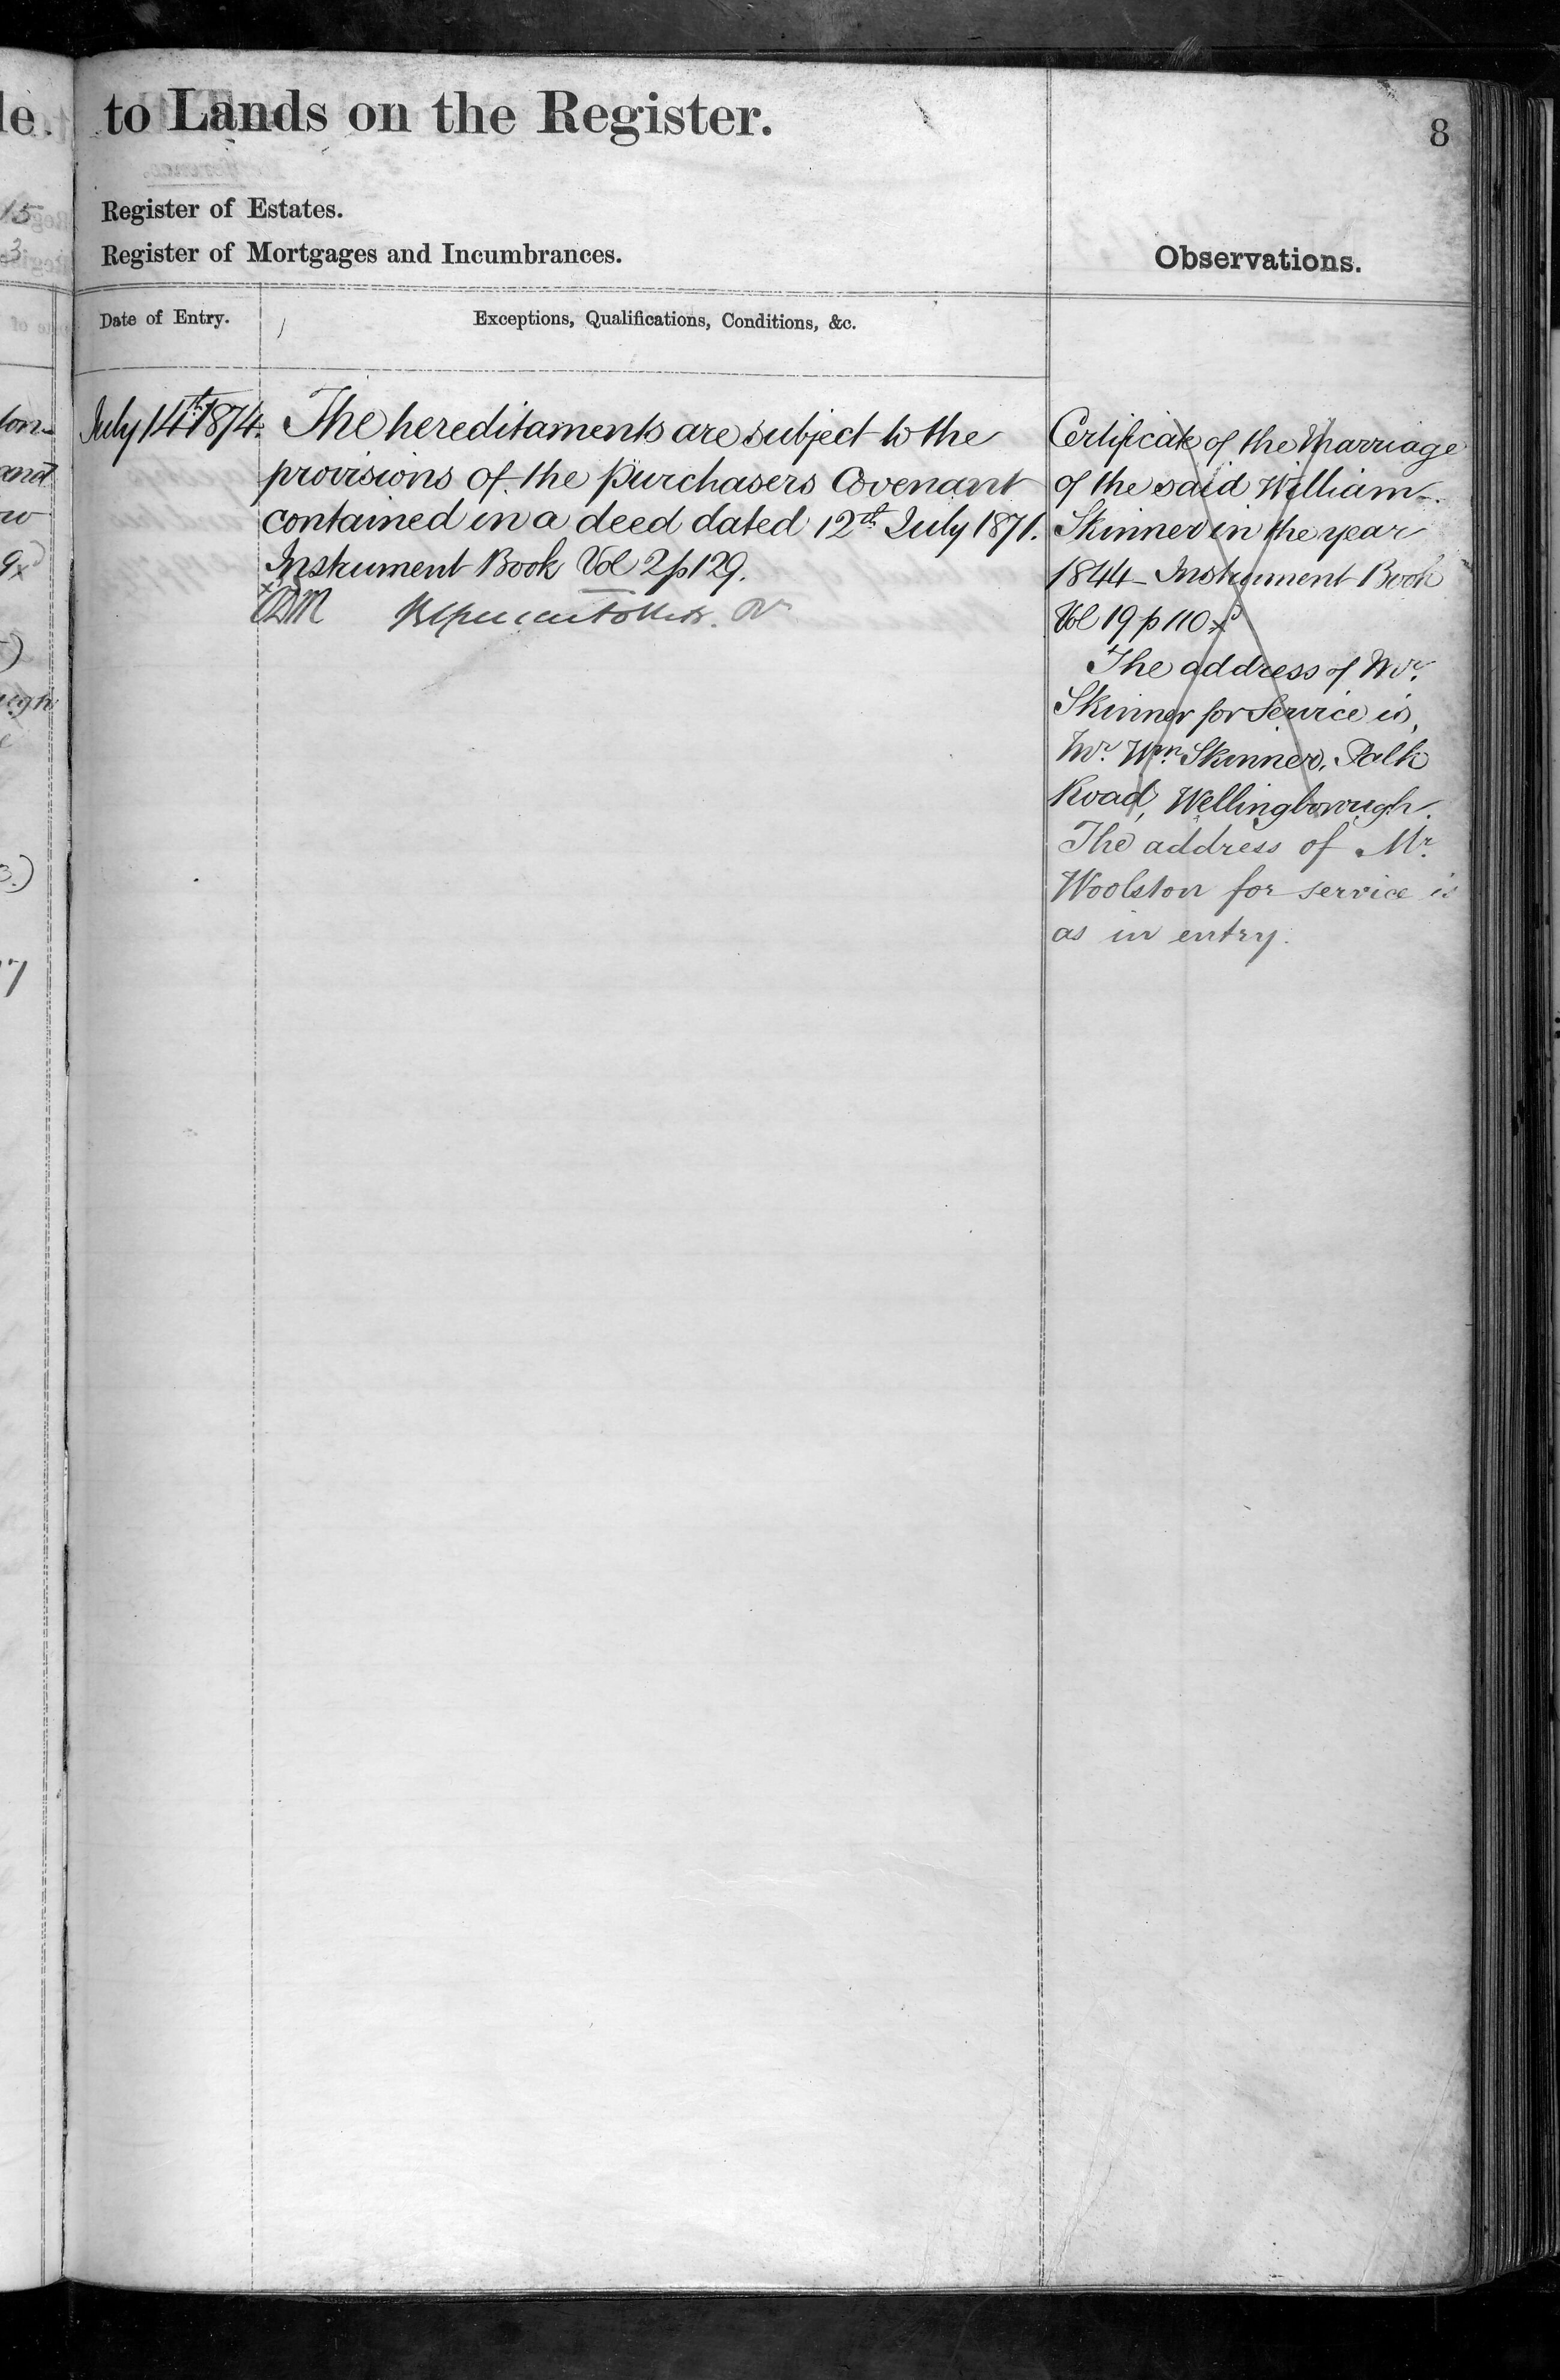 le. to Lands on the Register.
8
Register of Estates.
Register of Mortgages and Incumbrances.
Observations.
Date of Entry.
Exceptions, Qualifications, Conditions, &c.
July 14th 1874.
The hereditaments are subject to the
provisions of the purchasers Covenant
contained in a deed dated 12th July 1871.
Instrument Book Vol 2 p 129.
Certificate of the Marriage
of the said William
Skinner in the year
1844 - Instrument Book
Vol 19 p 110
The address of Mr.
Skinner for Service is,
Mr. Wm. Skinner, Palk
Road, Wellingborough.
The address of Mr.
Woolston for service is
as in entry.